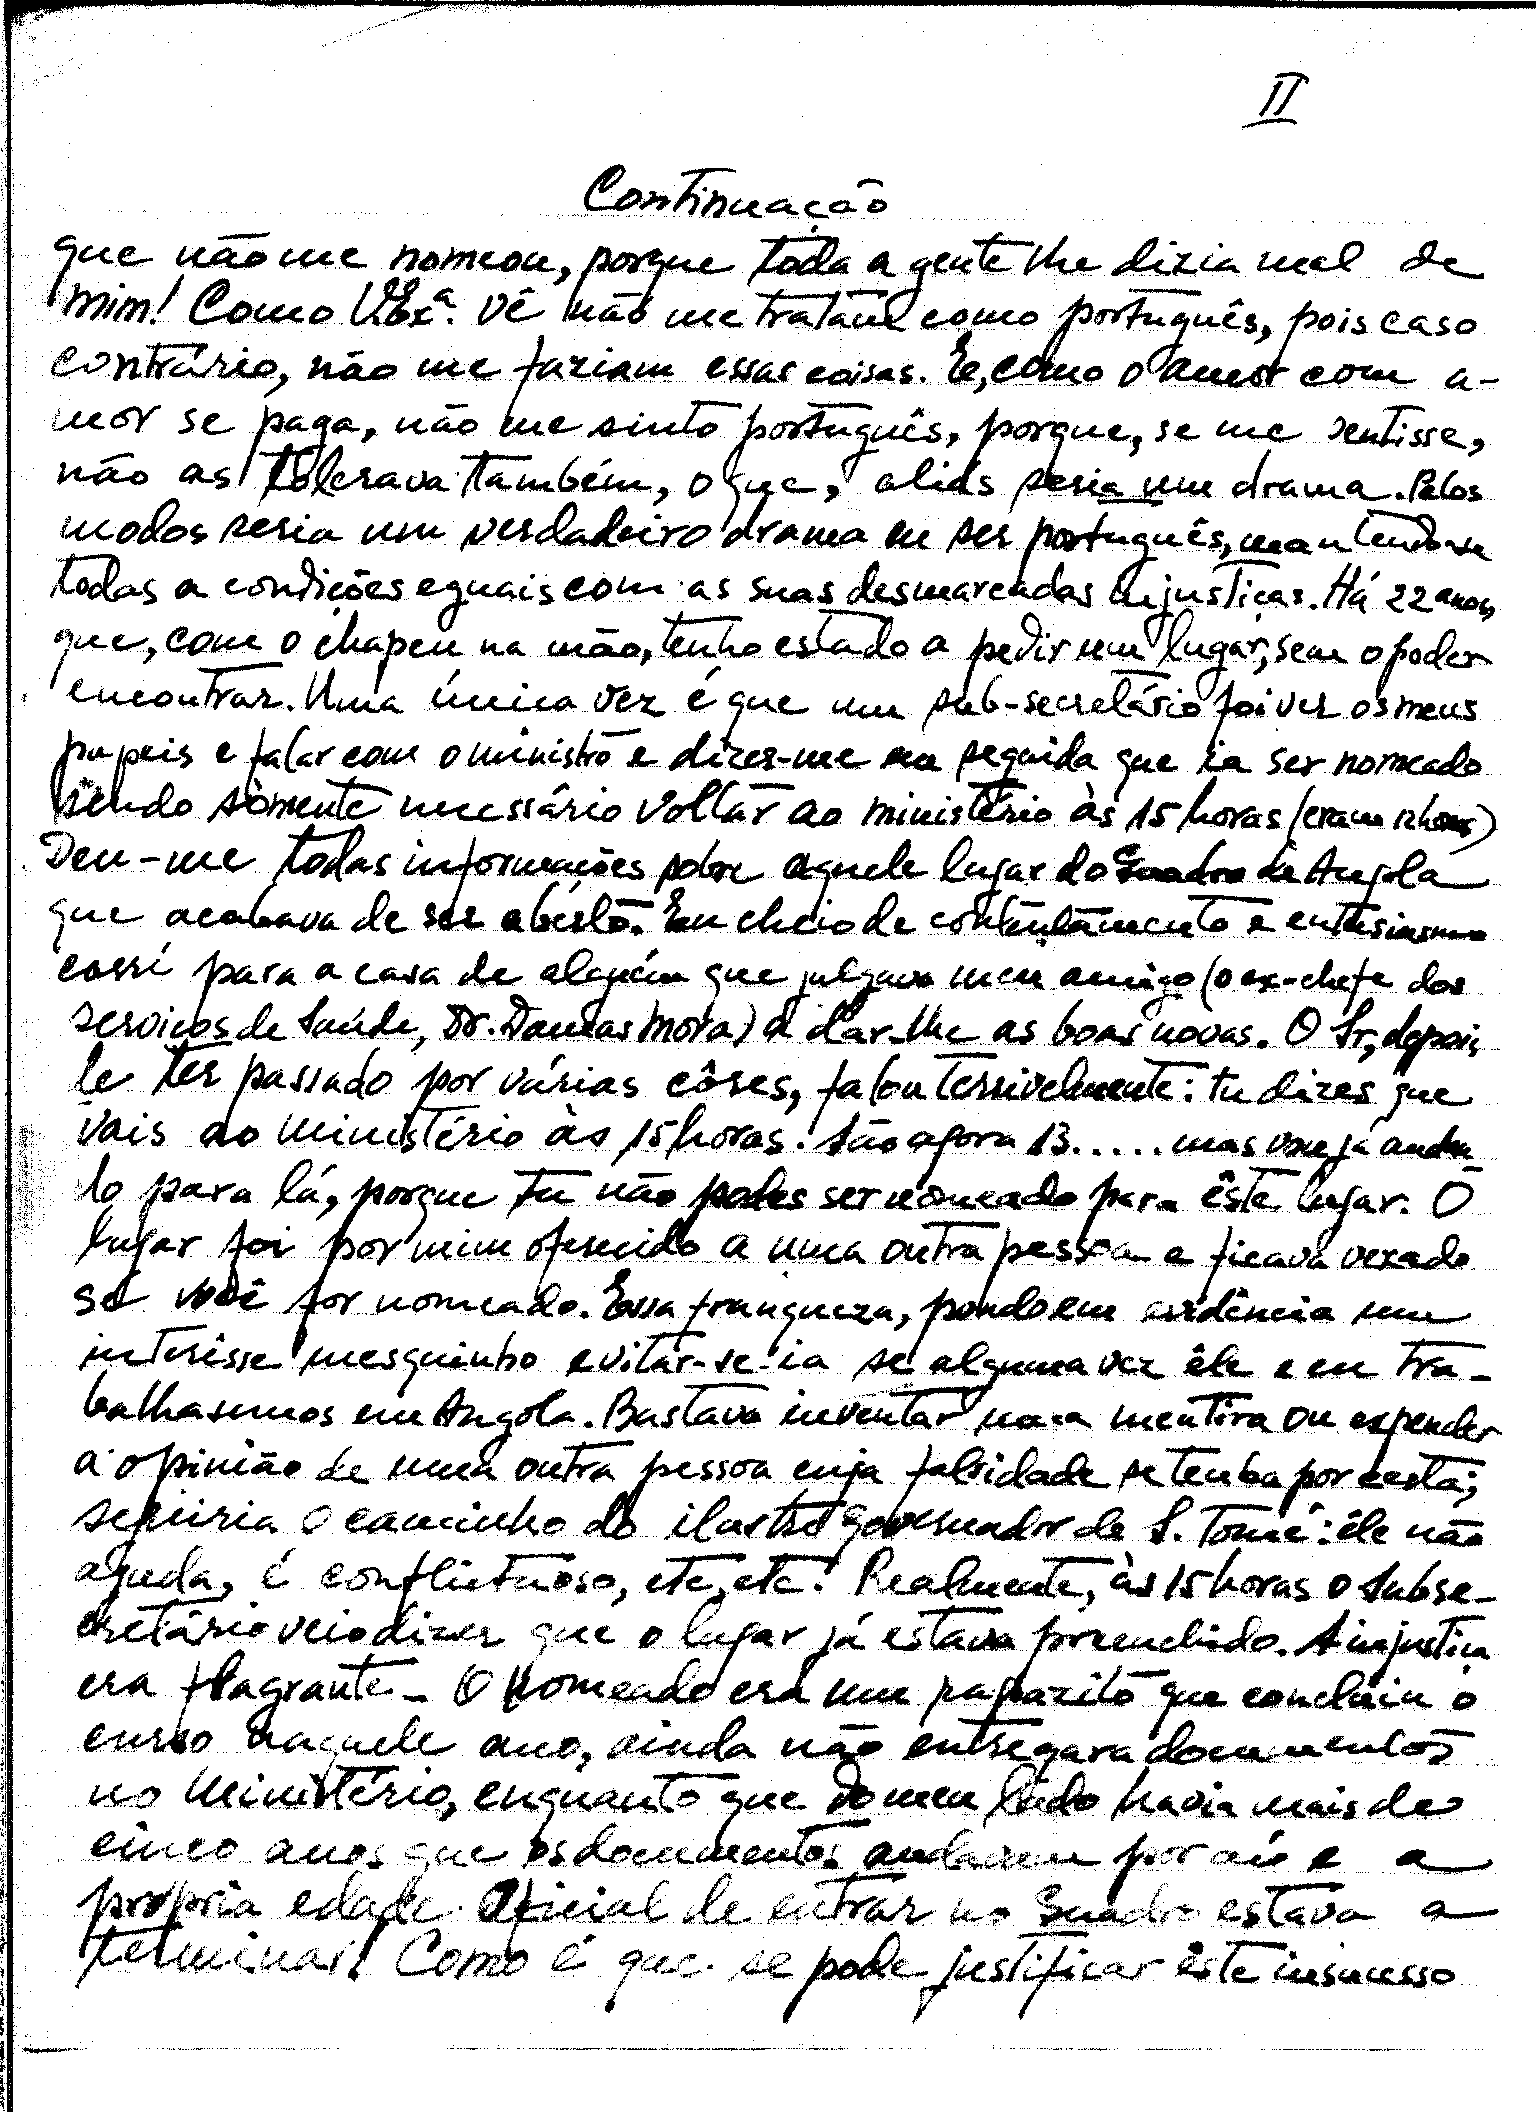 II
Continuação
que não me nomeou, porque toda a gente lhe dizia mal de
mim! Como V. Exª. vê não me tratam como português, pois caso
contrário, não me faziam essas coisas. E, como o amor com a-
mor se paga, não me sinto português, porque, se me sentisse,
não as tolerava também, o que, aliás seria um drama. Pelos
modos seria um verdadeiro drama eu ser português, mantendo-se
todas a condições eguais com as suas desmarcadas injustiças. Há 22 anos,
que, com o chapeu na mão, tenho estado a pedir um lugar, sem o poder
encontrar. Uma única vez é que um sub-secretário foi ver os meus
papeis e falar com o ministro e dizer-me em seguida que ia ser nomeado
sendo sòmente necessário voltar ao ministério às 15 horas (eram 12 horas)
Deu-me todas informações sobre aquele lugar do Quadro de Angola
que acabava de ser aberto. Eu cheio de contentamento e entusiasmo
corri para a casa de alguém que julgava meu amigo (o ex-chefe dos
serviços de Saúde, Dr. Damas Mora) a dar-lhe as boas novas. O Sr, depois
de ter passado por várias côres, falou terrivelmente: tu dizes que
vais ao ministério às 15 horas. São agora 13..... mas vou já andan
do para lá, porque tu não podes ser nomeado para êste lugar. O
lugar foi por mim oferecido a uma outra pessoa e ficava vexado
se você for nomeado. Essa franqueza, pondo em evidência um
interêsse mesquinho evitar-se-ia se alguma vez êle e eu tra-
balhasemos em Angola. Bastava inventar uma mentira ou expender
a opinião de uma outra pessoa cuja falsidade se tenha por certa;
seguiria o caminho do ilustre governador de S. Tomé: êle não
ajuda, é conflictuoso, etc, etc. Realmente, às 15 horas o subse-
cretário veio dizer que o lugar já estava preenchido. A injustiça
era flagrante - O nomeado era um rapazito que concluiu o
curso naquele ano, ainda não entregara documentos
no Ministério, enquanto que do meu lado havia mais de
cinco anos que os documentos andavam por aí e a
própria edade oficial de entrar no Quadro estava a
terminar! Como é que se pode justificar êste insucesso